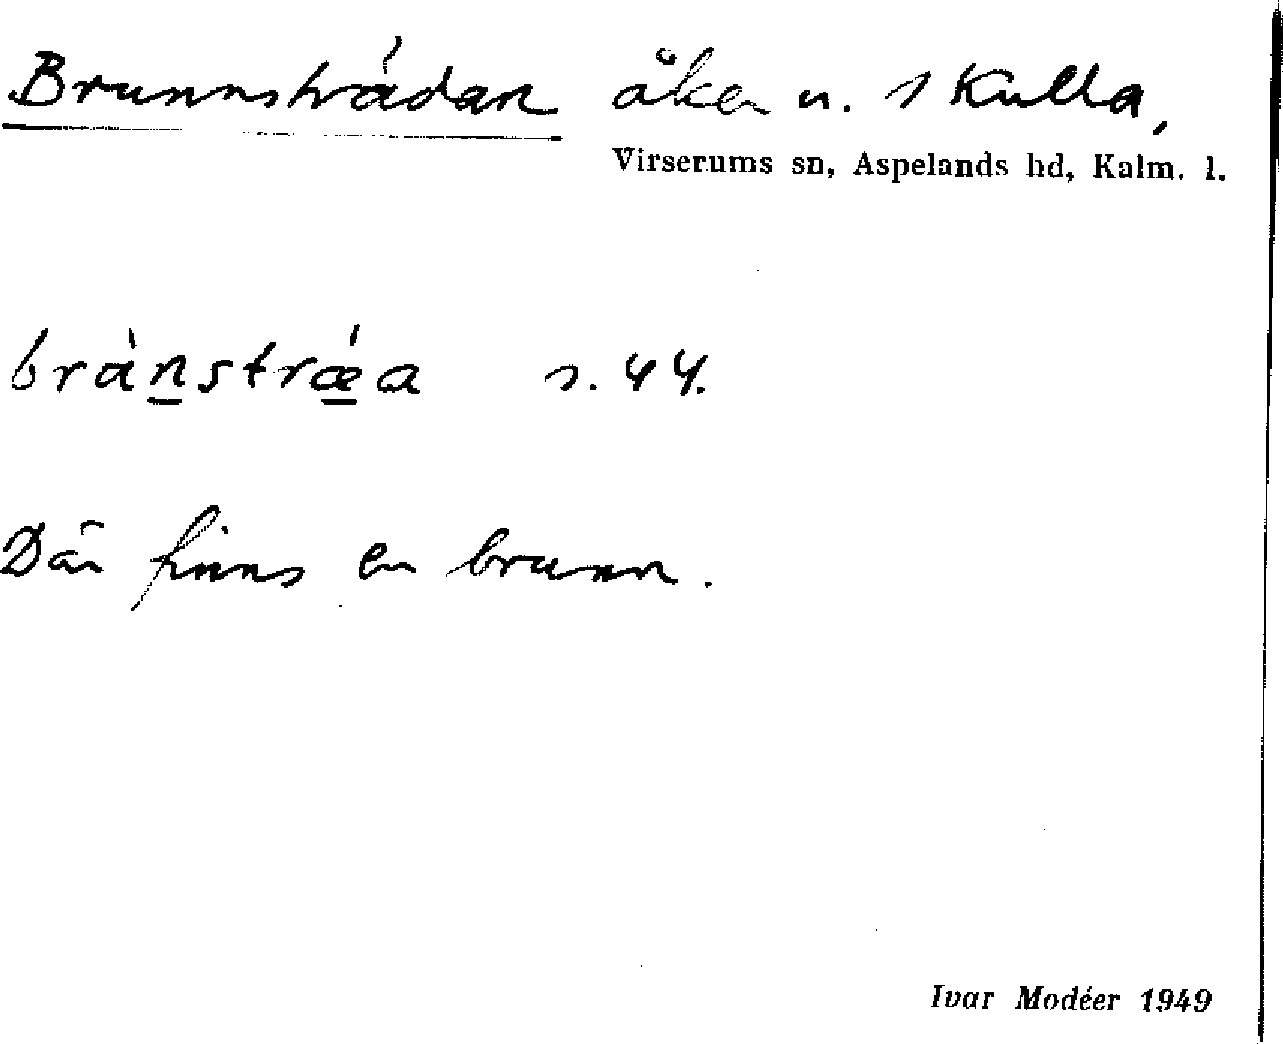 Brunnsträdan åker u. 1 Kulla,
Virserums sn, Aspelands hd, Kalm. l.
brànstrǽa s. 44.
Där finns en brunn.
Ivar Modéer 1949